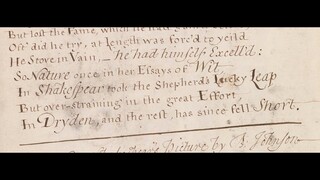 But lost the Fame, which he had
Oft' did he try, at Length was forc'd to yeild
He Strove in Vain, — he had himself Excell'd:
So Nature once in her Essays of Wit,
In Shakespear took the Shepherd's Lucky Leap
But over-straining in the great Effort,
In Dryden, and the rest, has since fell Short.
Picture by J. Johnson